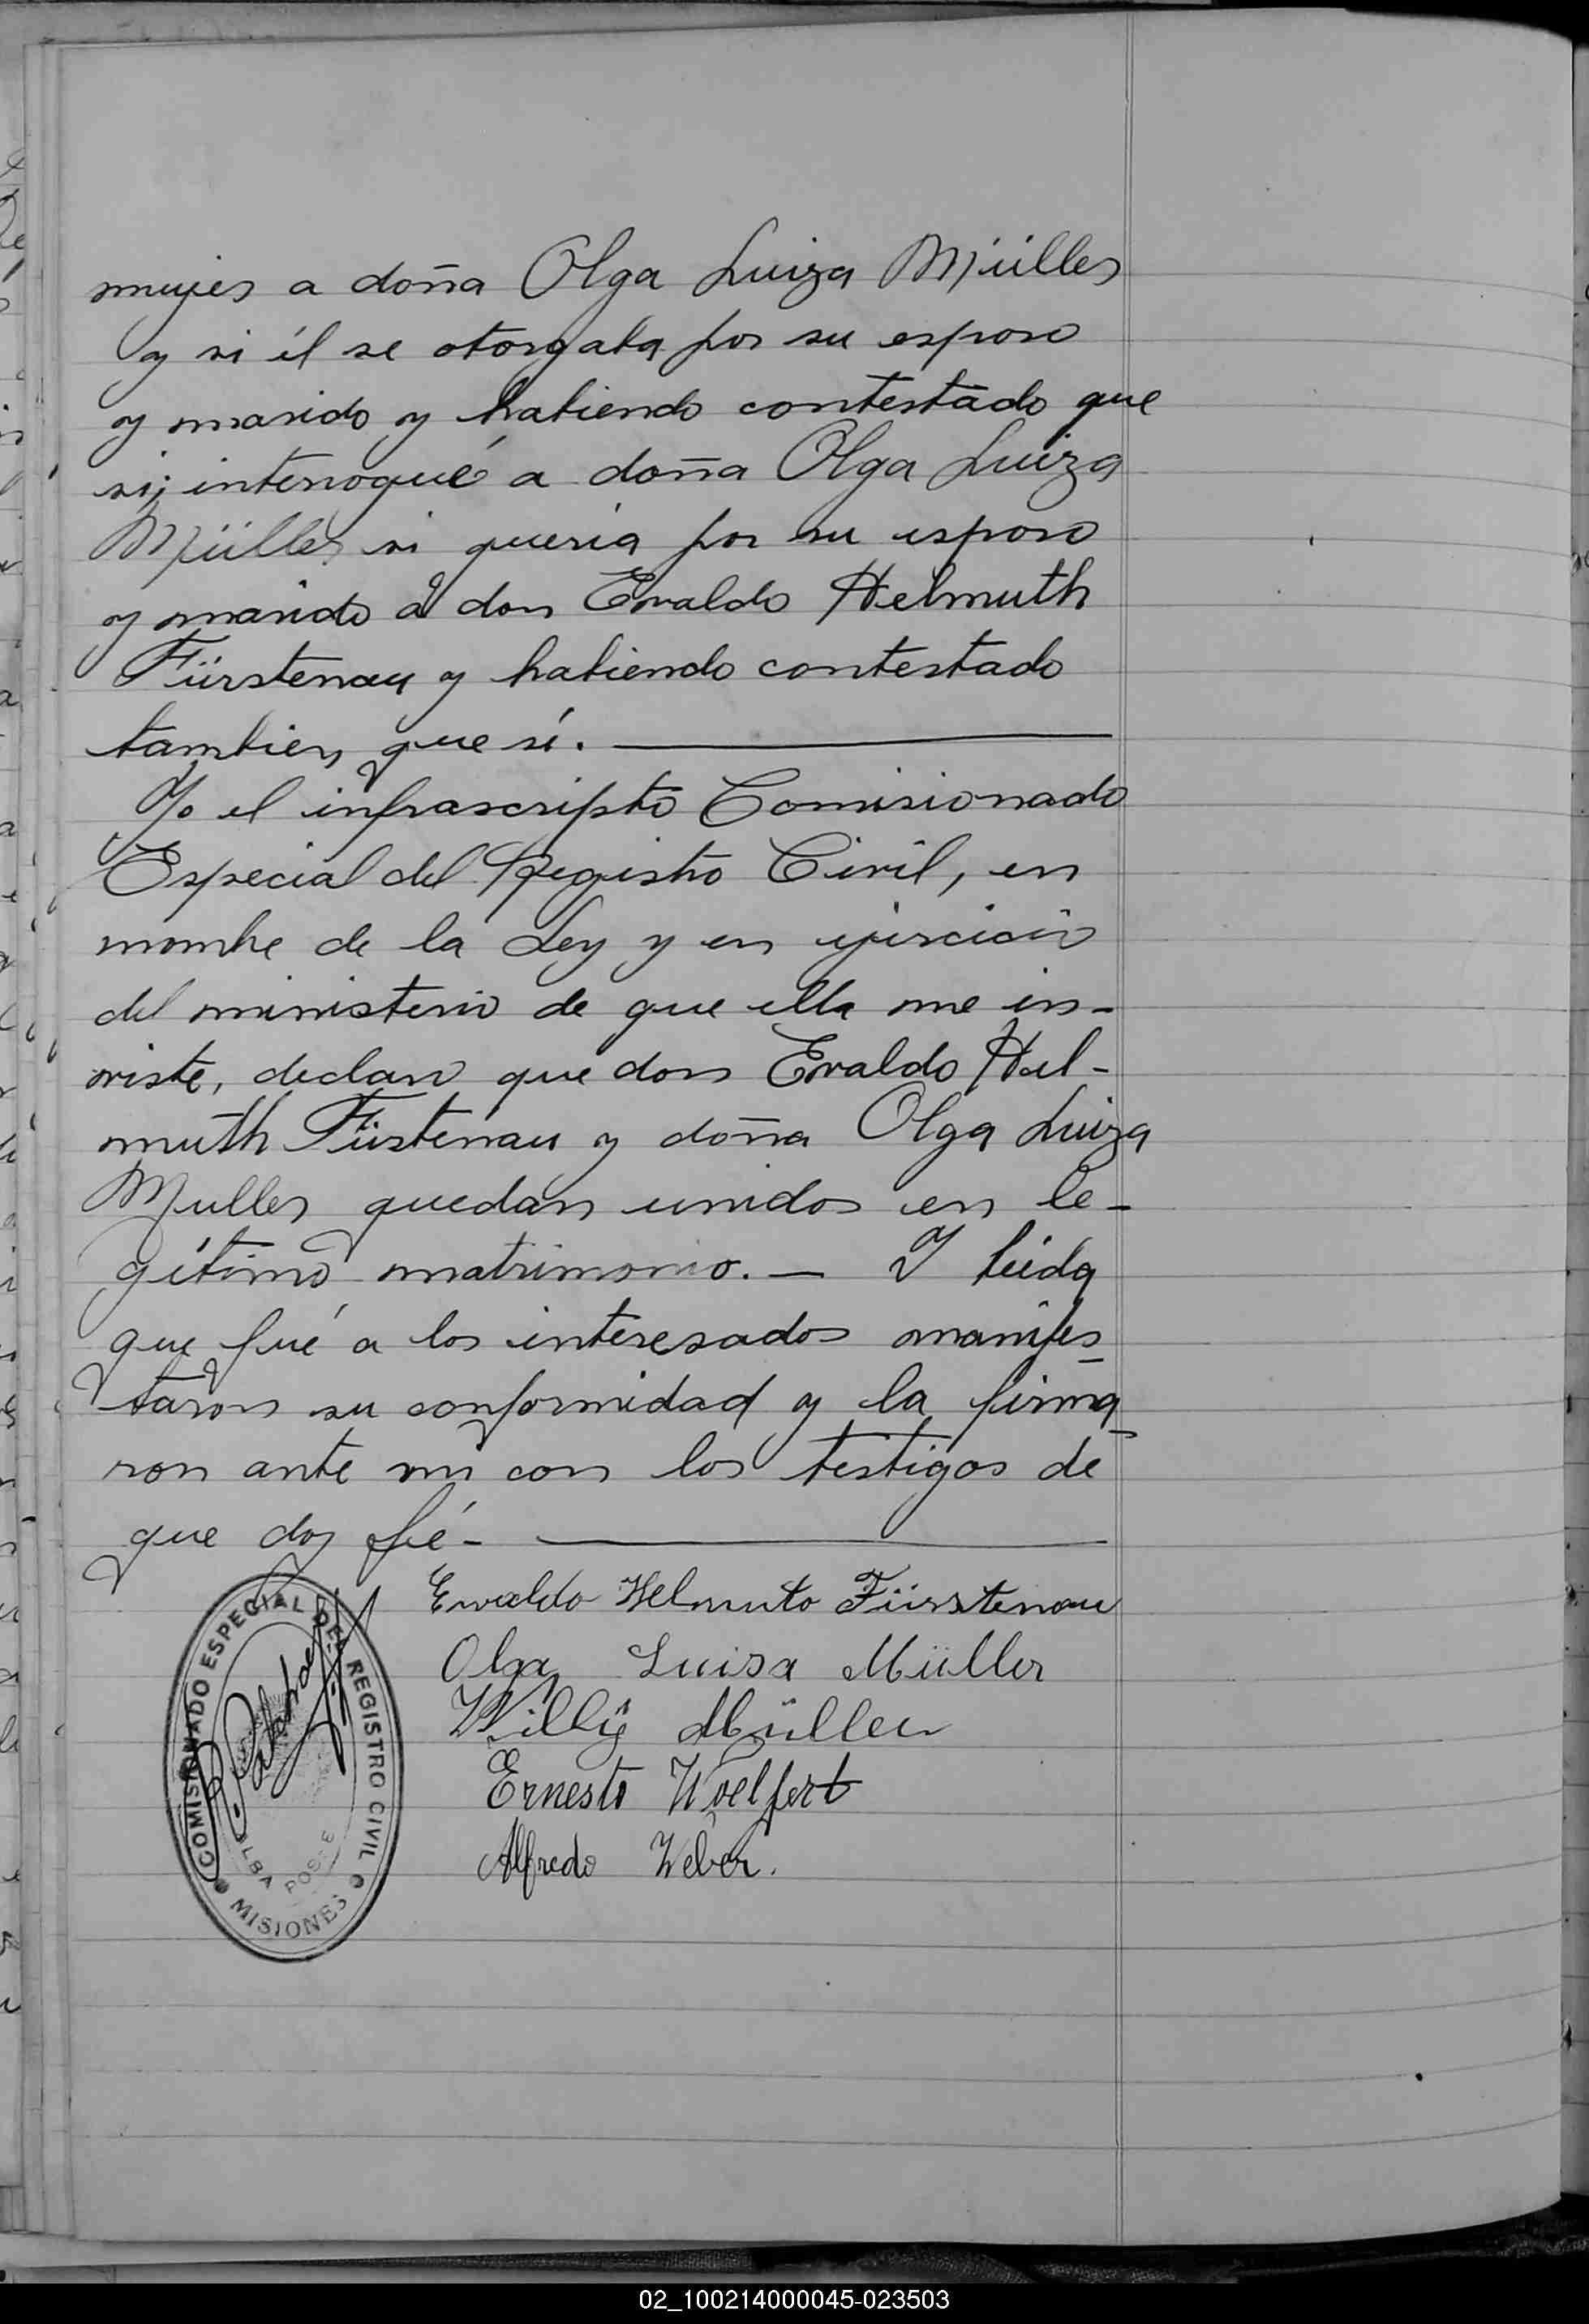 mujer a doña Olga Luiza Müller
y si él se otorgaba por su esposo
y marido y habiendo contestado que
si; interrogué a doña Olga Luiza
Müller si queria por su esposo
y marido a don Evaldo Helmuth
Fürstenau y habiendo contestado
tambien que sí.
Yo el infrascripto Comisionado
Especial del Registro Civil, en
nombre de la Ley y en ejercicio
del ministerio de que ella me in-
viste, declaro que don Evaldo Hel-
muth Füstenau y doña Olga Luiza
Muller quedan unidos en le-
gítimo matrimonio. — Y leida
que fué a los interesados manifes-
taron su conformidad y la firma-
ron ante mi con los testigos de
que doy fé -
Ewaldo Helmuto Fürstenau
Olga Luisa Müller
Willy Müller
Ernesto Woelfert
Alfredo Weber.
COMISIONADO ESPECIAL DEL REGISTRO CIVIL
ALBA POSSE
MISIONES
02_100214000045-023503